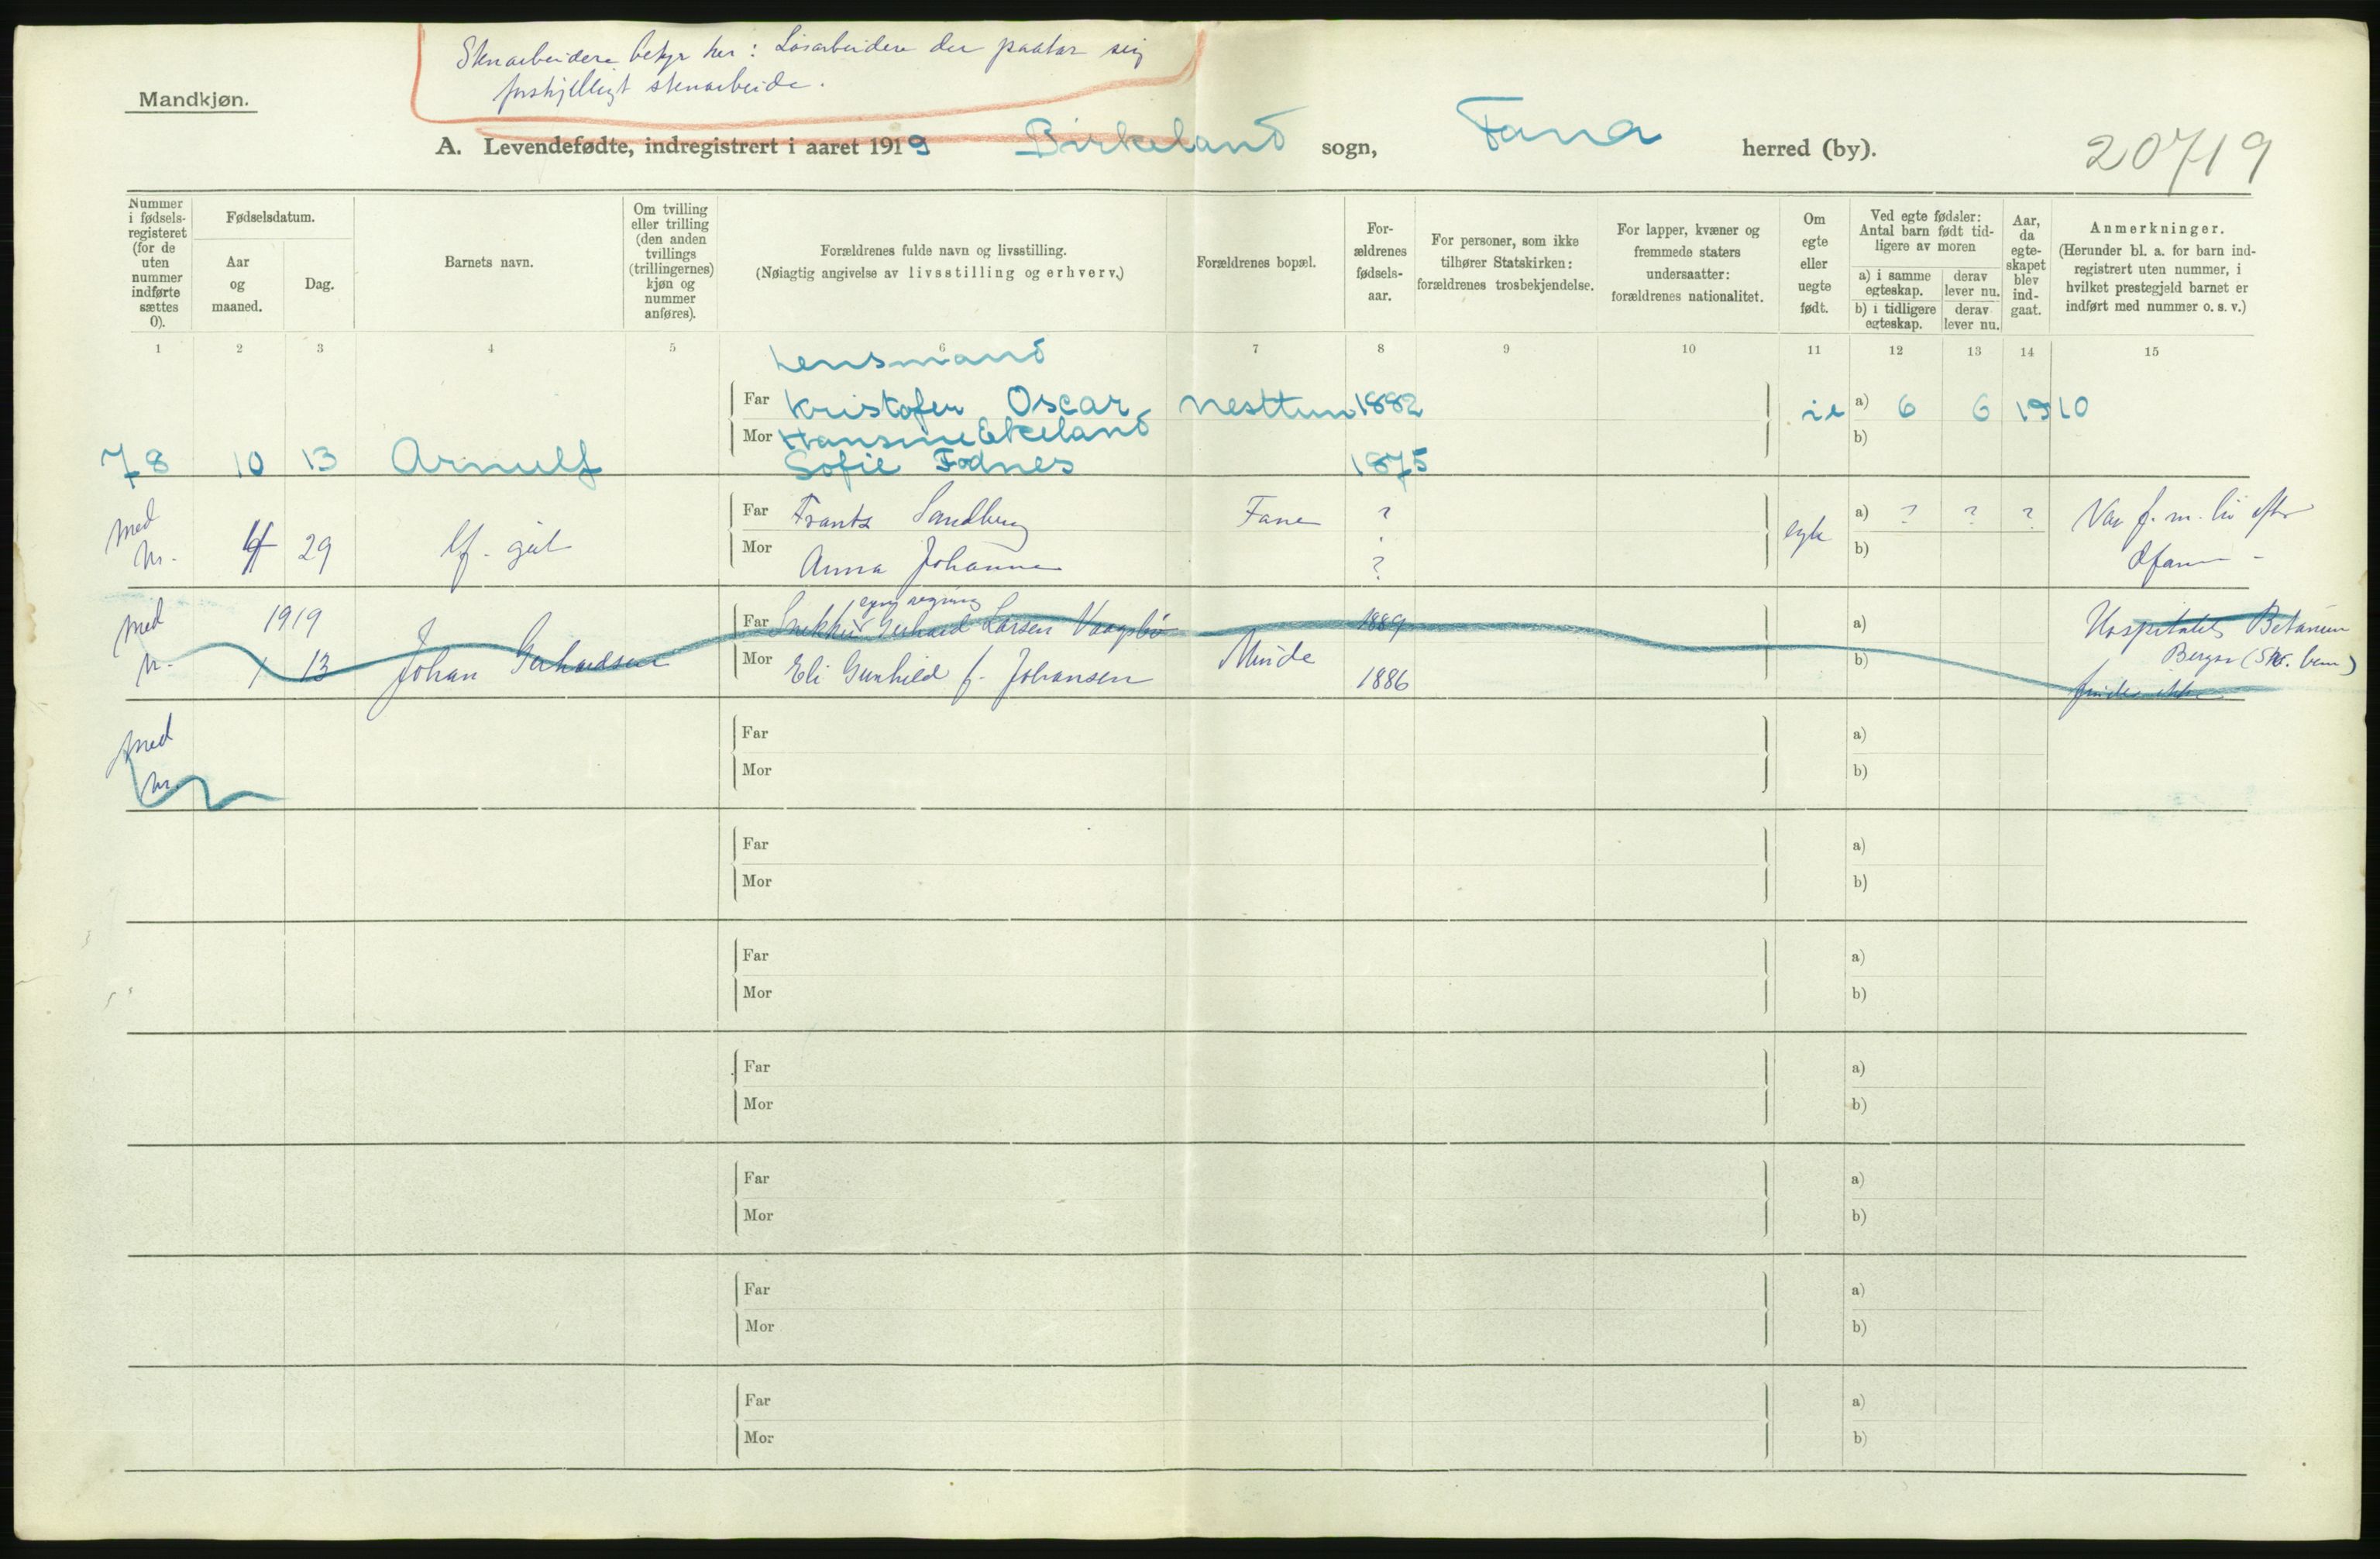 Stenarbeidere betyr her: Løsarbeidere der paatar sig
forskjelligt stenarbeide.
Mandkjøn.
A. Levendefødte, indregistrert i aaret 1919 Birkeland sogn, Fana herred (by). 20719
Nummer i fødselsregisteret (for de uten nummer indførte sættes 0).
Fødselsdatum.
Aar og maaned.
Dag.
Barnets navn.
Om tvilling eller trilling (den anden tvillings (trillingernes) kjøn og nummer anføres).
Forældrenes fulde navn og livsstilling.
(Nøiagtig angivelse av livsstilling og erhverv.)
Forældrenes bopæl.
Forældrenes fødselsaar.
For personer, som ikke tilhører Statskirken: forældrenes trosbekjendelse.
For lapper, kvæner og fremmede staters undersaatter: forældrenes nationalitet.
Om egte eller uegte født.
Ved egte fødsler: Antal barn født tidligere av moren
a) i samme egteskap.
derav lever nu.
b) i tidligere egteskap.
derav lever nu.
Aar, da egteskapet blev indgaat.
Anmerkninger.
(Herunder bl. a. for barn indregistrert uten nummer, i hvilket prestegjeld barnet er indført med nummer o. s. v.)
1 2 3 4 5 6 7 8 9 10 11 12 13 14 15
Lensmand
Far Kristofer Oscar Nesttun 1882 a) 6 6 1910
Mor b)
78 10 13 Arnulf Sofie Fodnes 1875
Far Frantz Sandberg Fane ? a) ? ? ?
med nr. 4 29 Mor Anna Johanna ? egte b)
1919
egen regning
Far Snekker Gerhard Larsen Vaagsbø 1889 a) Hospitalet Betanien
med nr. 1 13 Johan Gerhardsen Mor Eli Gunhild f. Johansen Minde 1886 b) Bergen
findes ikke
med nr. Far a)
Mor b)
Far a)
Mor b)
Far a)
Mor b)
Far a)
Mor b)
Far a)
Mor b)
Far a)
Mor b)
Far a)
Mor b)